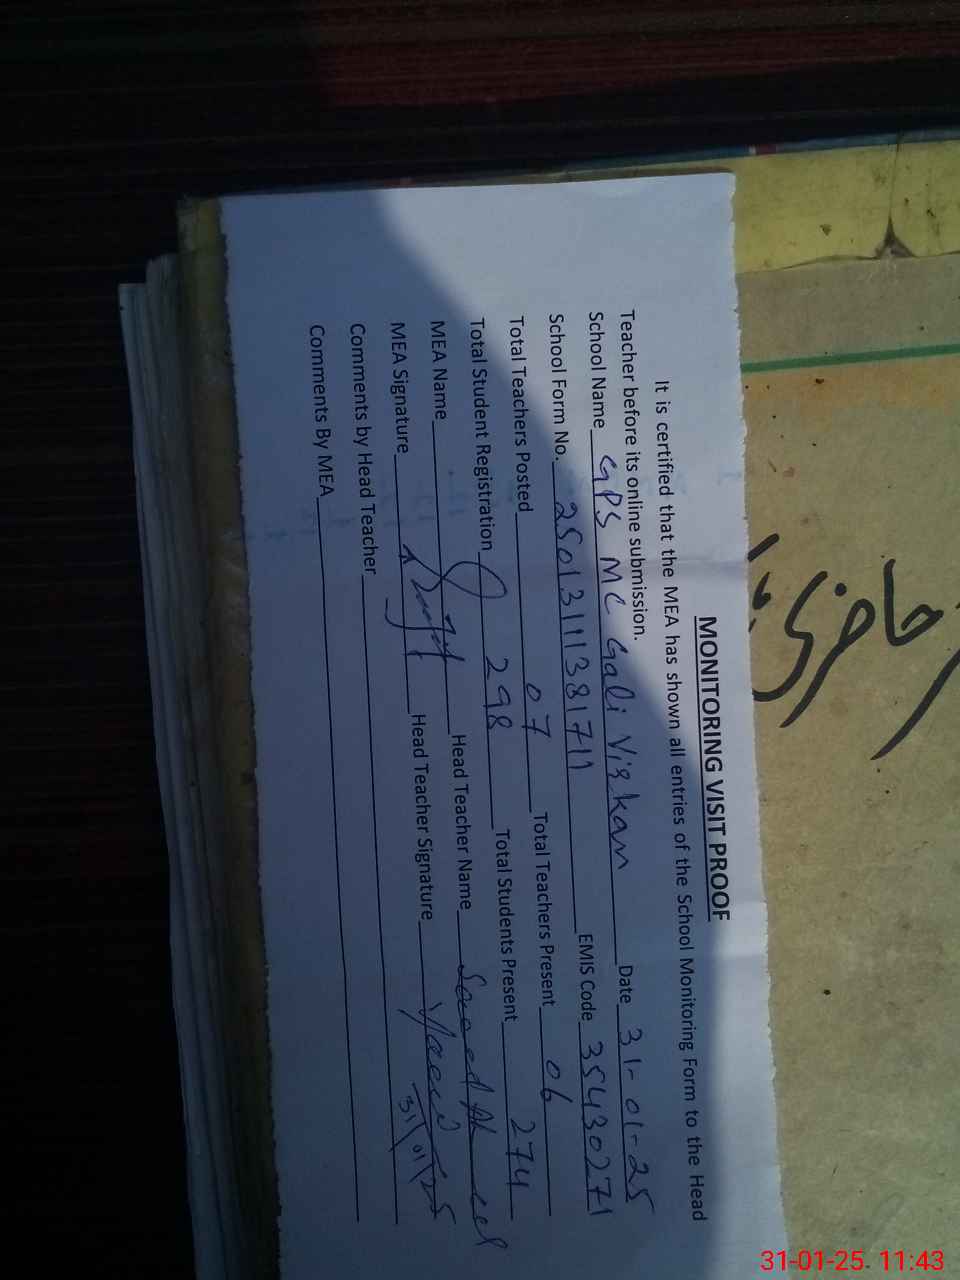 حاضری
MONITORING VISIT PROOF
It is certified that the MEA has shown all entries of the School Monitoring Form to the Head
Teacher before its online submission.
School Name GPS MC Gali Virkan Date 31-01-25
School Form No. 25013111381711 EMIS Code 35430271
Total Teachers Posted 07 Total Teachers Present 06
Total Student Registration 298 Total Students Present 274
MEA Name Head Teacher Name
MEA Signature Head Teacher Signature 31/01/25
Comments by Head Teacher
Comments By MEA
31-01-25. 11:43